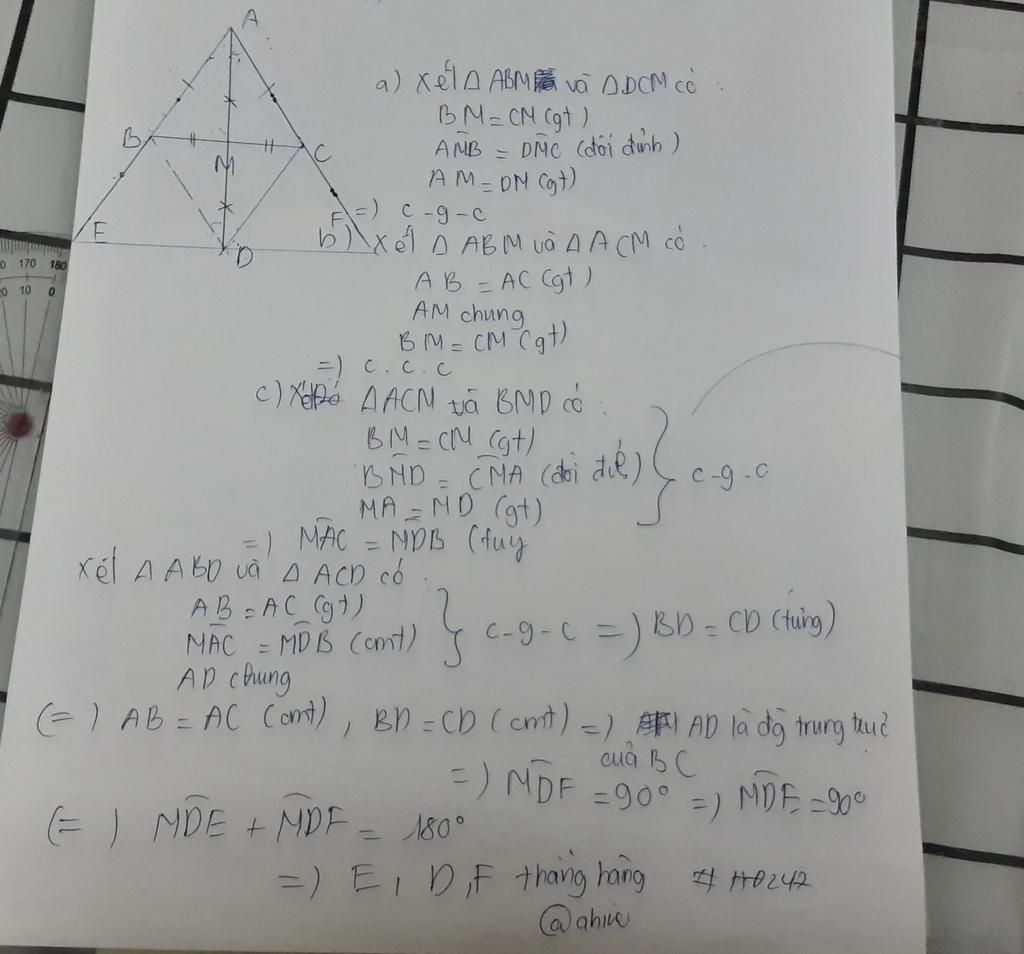 A
B
M
C
E
D
F
a) Xét Δ ABM và ΔDCM có :
BM = CM (gt)
AMB = DMC (đối đỉnh)
AM = DM (gt)
=) c-g-c
b) Xét Δ ABM và Δ ACM có .
AB = AC (gt)
AM chung
BM = CM (gt)
=) c.c.c
c) Xét ΔACM và BMD có :
BM = CM (gt)
BMD = CMA (đối đỉ)
MA = MD (gt)
c-g-c
=) MAC = MDB (tuy
Xét Δ ABD và Δ ACD có .
AB = AC (gt)
MAC = MDB (cmt)
AD chung
c-g-c =) BD = CD (tưng)
(=) AB = AC (cmt), BD = CD (cmt) =) AD là đg trung trực
của BC
=) MDF = 90° =) MDE = 90°
(=) MDE + MDF = 180°
=) E, D, F thẳng hàng
0 170 180
20 10 0